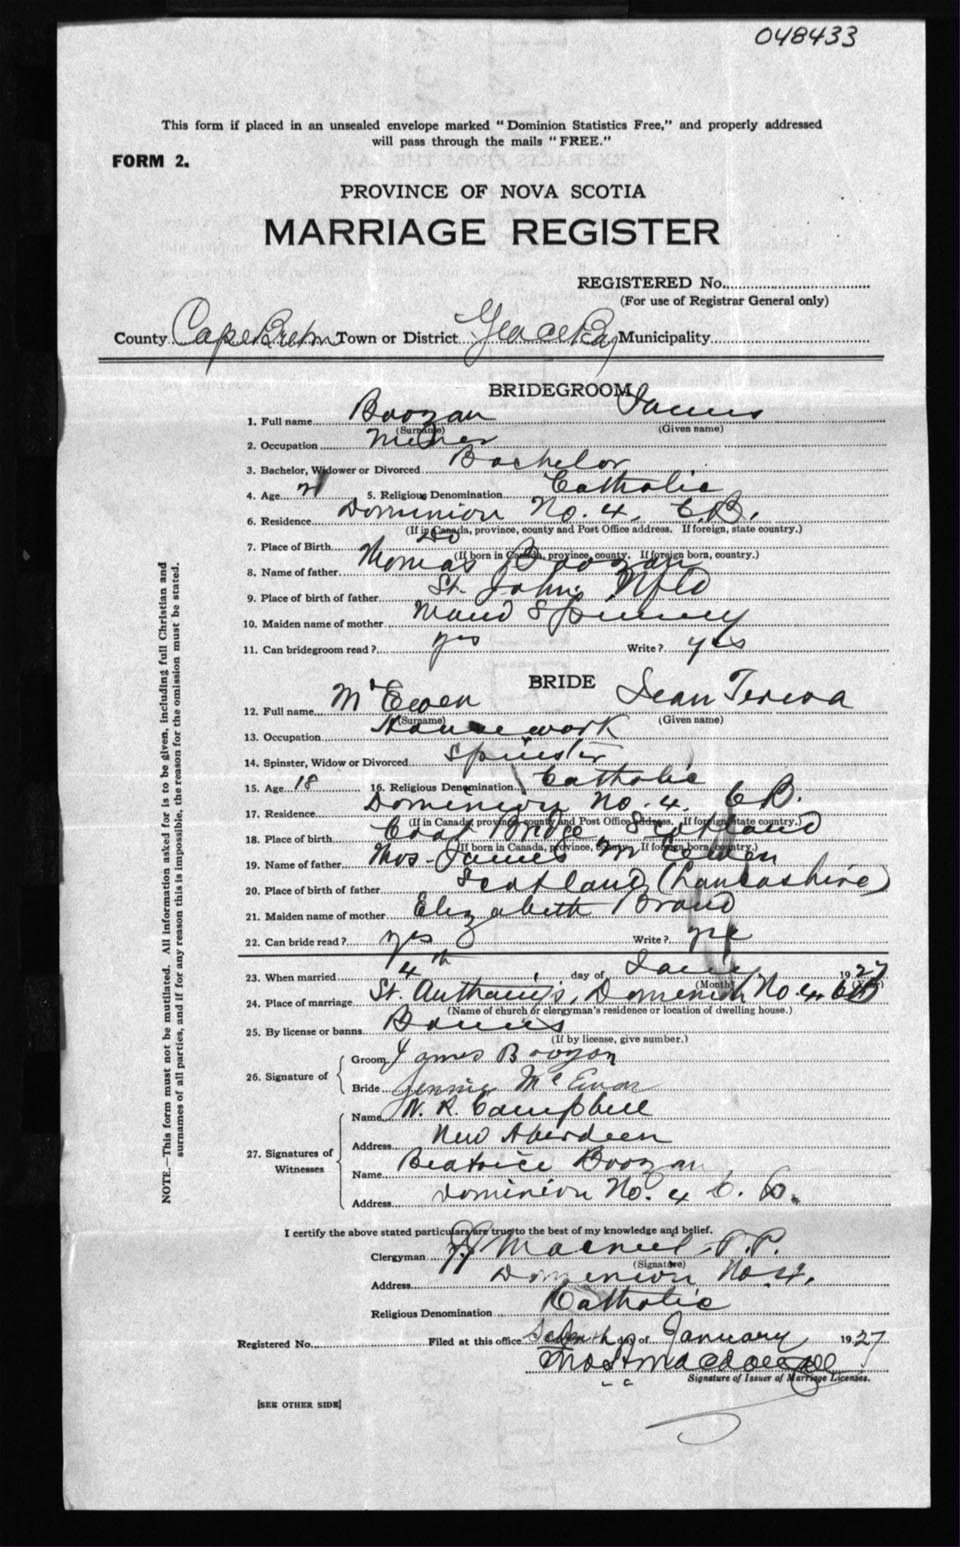 048433
This form if placed in an unsealed envelope marked "Dominion Statistics Free," and properly addressed
will pass through the mails "FREE."
FORM 2.
PROVINCE OF NOVA SCOTIA
MARRIAGE REGISTER
REGISTERED No.
(For use of Registrar General only)
County Cape Breton Town or District Glace Bay Municipality
BRIDEGROOM
1. Full name Boozan James
(Surname) (Given name)
2. Occupation Miner
3. Bachelor, Widower or Divorced Bachelor
4. Age 21 5. Religious Denomination Catholic
6. Residence Dominion No. 4. C.B.
(If in Canada, province, county and Post Office address. If foreign, state country.)
7. Place of Birth Do
(If born in Canada, province, county. If foreign born, country.)
8. Name of father Thomas Boozan
9. Place of birth of father St. Johns Nfld
10. Maiden name of mother Maud Spinney
11. Can bridegroom read? yes Write? yes
BRIDE
12. Full name McEwen Jean Teresa
(Surname) (Given name)
13. Occupation Housework
14. Spinster, Widow or Divorced Spinster
15. Age 18 16. Religious Denomination Catholic
17. Residence Dominion No. 4. C.B.
(If in Canada, province, county and Post Office address. If foreign, state country.)
18. Place of birth Coat Bridge Scotland
(If born in Canada, province, county. If foreign born, country.)
19. Name of father Thos. James McEwen
20. Place of birth of father Scotland (Lancashire)
21. Maiden name of mother Elizabeth Brand
22. Can bride read? yes Write? yes
23. When married 4th day of Jany 1927
(Month)
24. Place of marriage St. Anthony's, Dominion No 4. CB
(Name of church or clergyman's residence or location of dwelling house.)
25. By license or banns Banns
(If by license, give number.)
26. Signature of Groom James Boozan
Bride Jennie McEwan
27. Signatures of Witnesses Name N. R. Campbell
Address New Aberdeen
Name Beatrice Boozan
Address Dominion No. 4 C. B.
I certify the above stated particulars are true to the best of my knowledge and belief.
Clergyman MacNeil P.P.
(Signature)
Address Dominion No 4.
Religious Denomination Catholic
Registered No. Filed at this office day of January 1927
Thos. H. MacDougall
Signature of Issuer of Marriage Licenses.
[SEE OTHER SIDE]
NOTE.—This form must not be mutilated. All information asked for is to be given, including full Christian and
surnames of all parties, and if for any reason this is impossible, the reason for the omission must be stated.